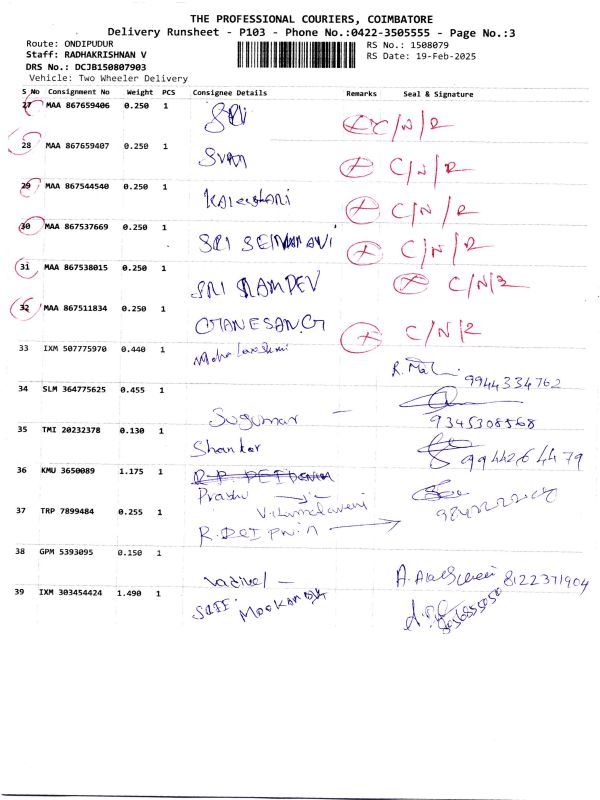 THE PROFESSIONAL COURIERS, COIMBATORE
Delivery Runsheet - P103 - Phone No.:0422-3505555 - Page No.:3
Route: ONDIPUDUR RS No.: 1508079
Staff: RADHAKRISHNAN V RS Date: 19-Feb-2025
DRS No.: DCJB150807903
Vehicle: Two Wheeler Delivery
S_No Consignment No Weight PCS Consignee Details Remarks Seal & Signature
27 MAA 867659406 0.250 1 SRI C/N/R
28 MAA 867659407 0.250 1 C/N/R
29 MAA 867544540 0.250 1 C/N/R
30 MAA 867537669 0.250 1 SRI C/N/R
31 MAA 867538015 0.250 1 SRI RAMDEV C/N/R
32 MAA 867511834 0.250 1 GANESAN.G C/N/R
33 IXM 507775970 0.440 1 Mahalakshmi R.
9944334762
34 SLM 364775625 0.455 1 Sugumar 9345308568
35 TMI 20232378 0.130 1 Shanker 9944264479
36 KMU 3650089 1.175 1
Prabhu
37 TRP 7899484 0.255 1
38 GPM 5393095 0.150 1 Vadivel 8122371904
39 IXM 303454424 1.490 1